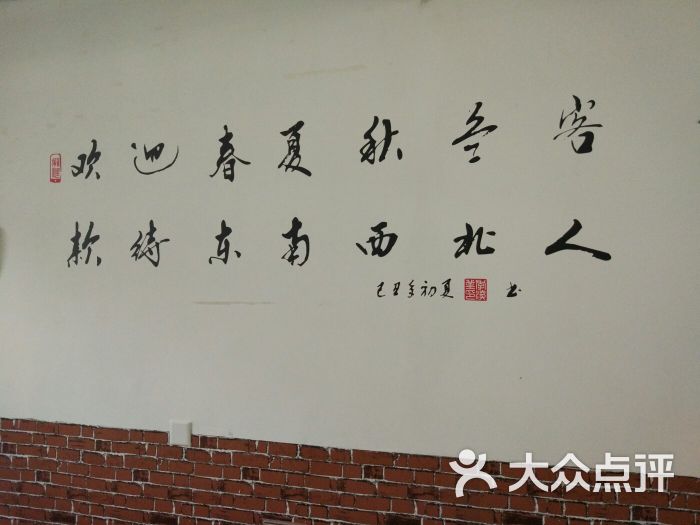 欢迎春夏秋冬客
款待东南西北人
己丑年初夏 书
大众点评